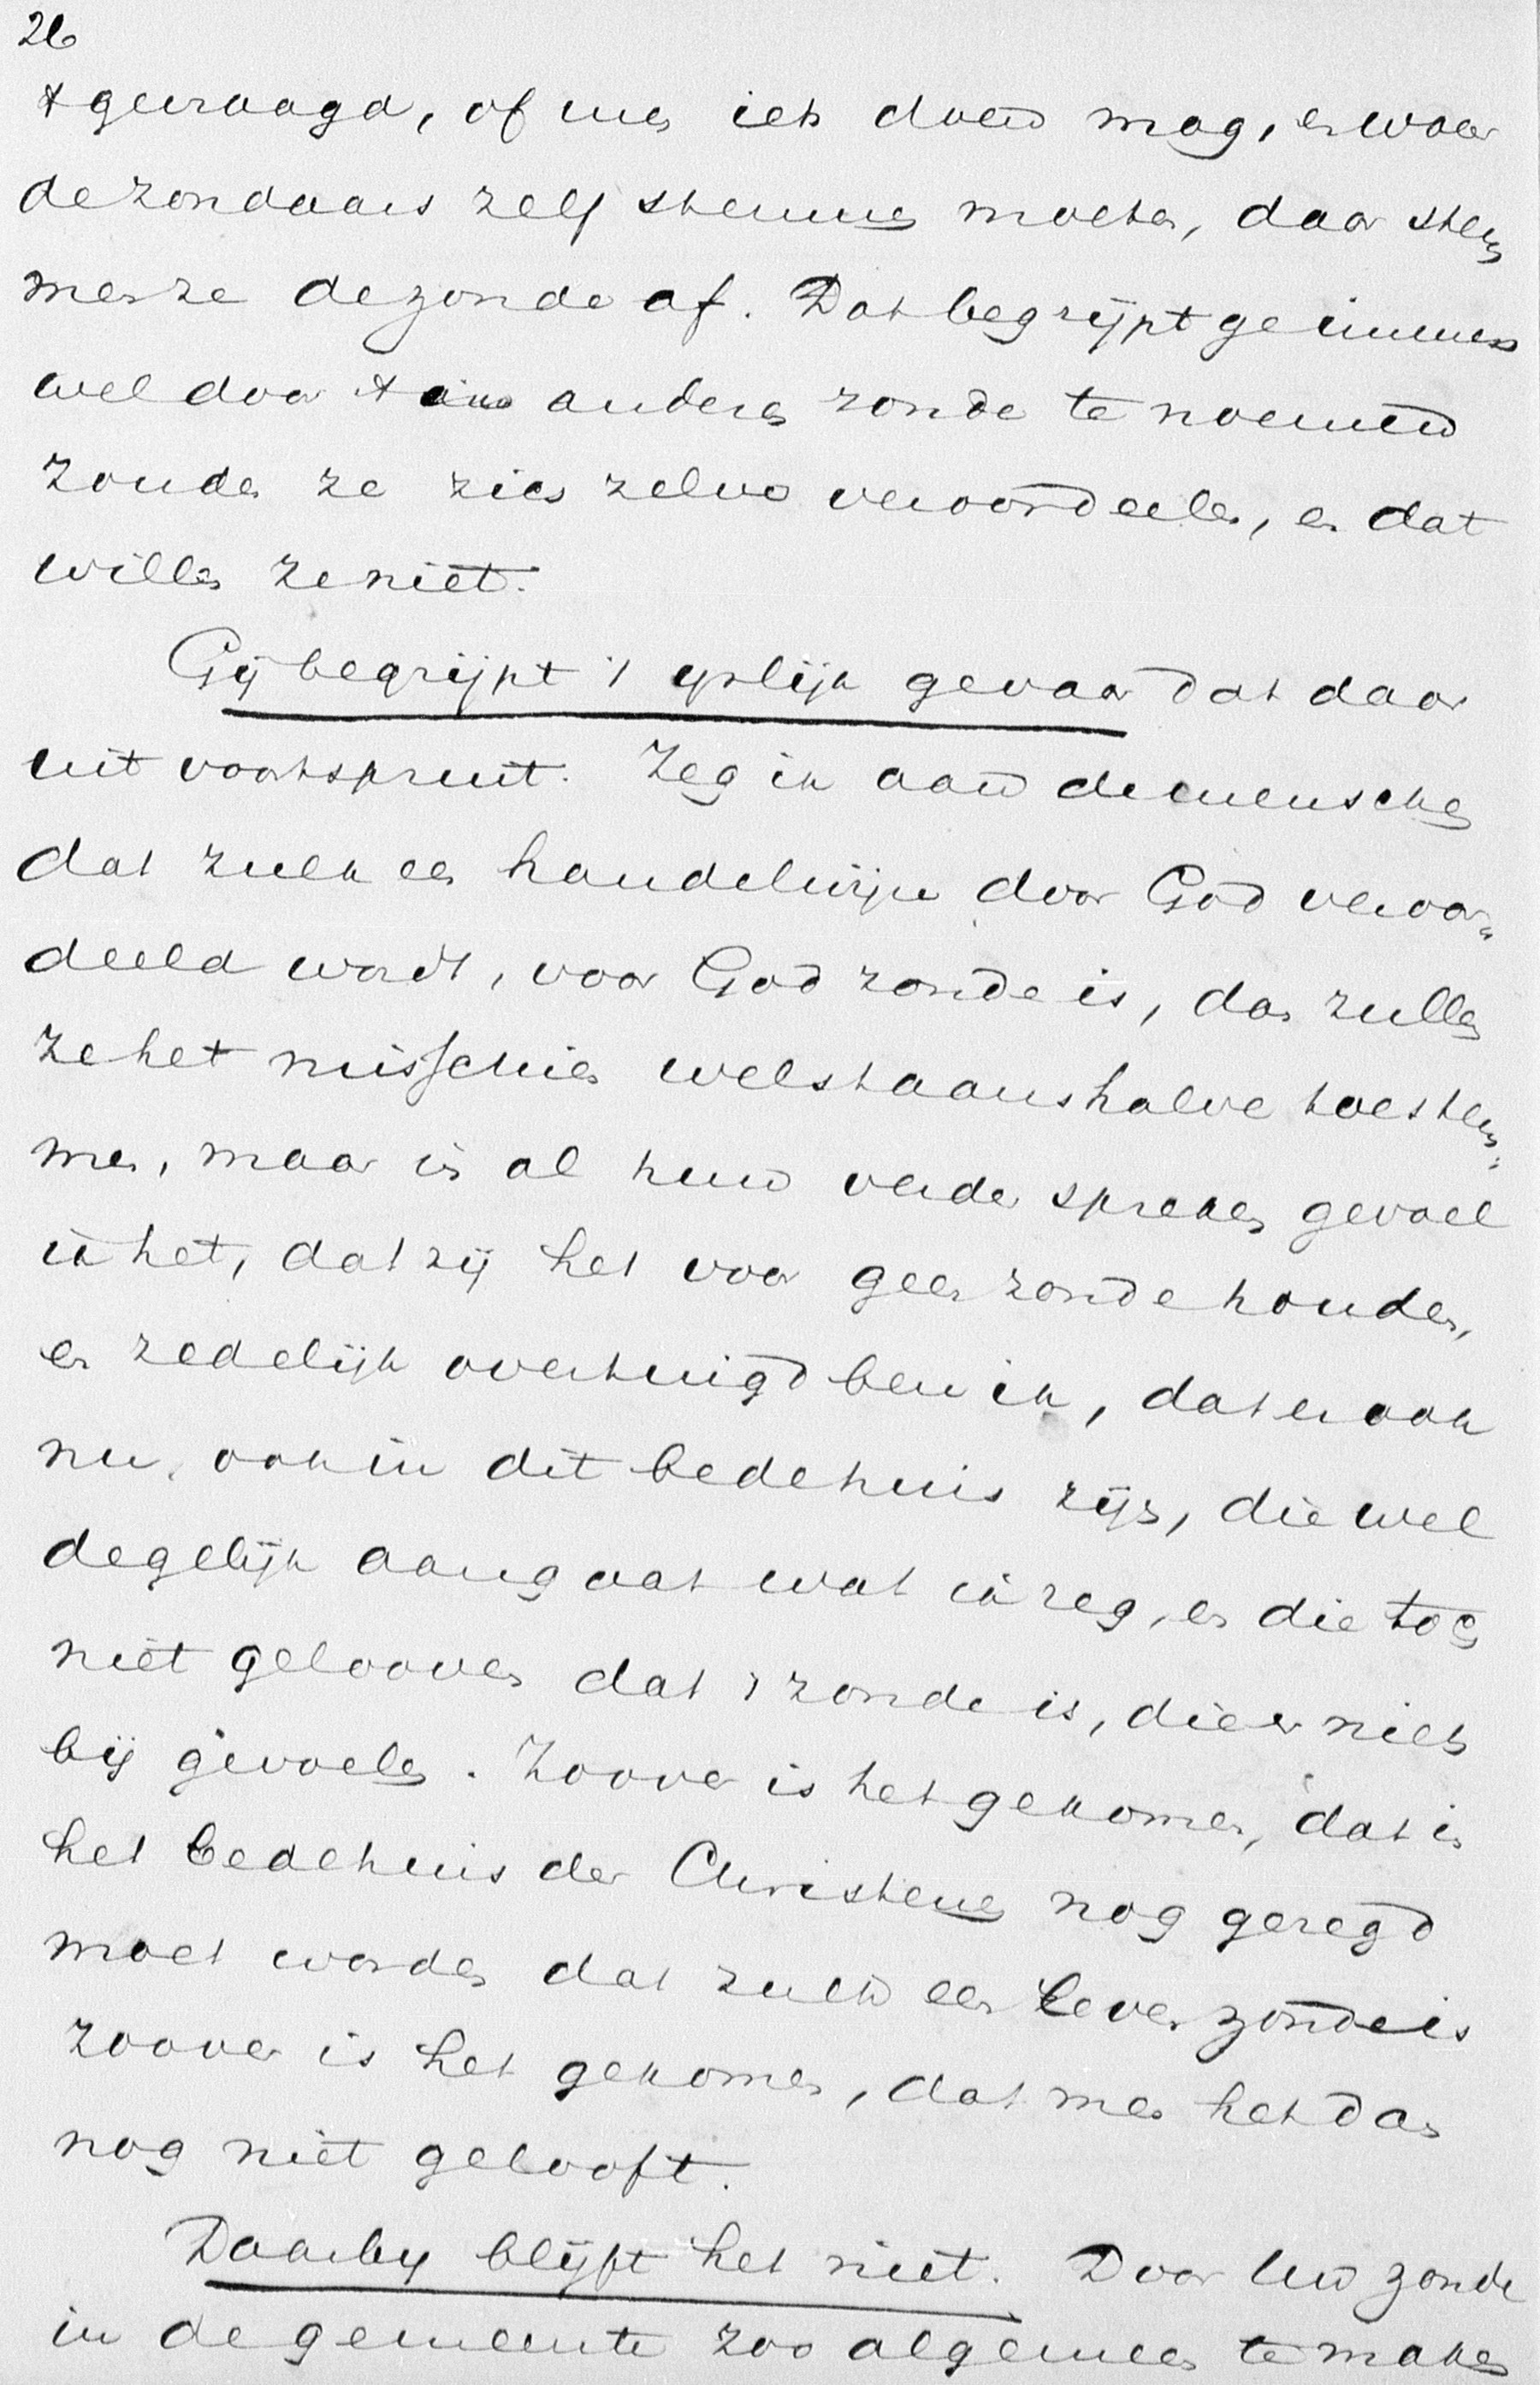 26
't gevraagd, of men iets doen mag, en waar
de zondaars zelf stemmen moeten, daar stem
men ze de zonde af. Dat begrijpt ge immers
wel door 't anderen zonde te noemen
zouden ze zich zelve veroordeelen, en dat
willen ze niet.
Gij begrijpt 't ijslijk gevaar dat daar
uit voortspruit. Zeg ik aan de menschen
dat zulk een handelwijze door God veroor„
deeld wordt, voor God zonde is, dan zullen
ze het misschien welstaanshalve toestem„
men, maar in al hun verder spreken gevoel
ik het, dat zij het voor geen zonde houden,
en zedelijk overtuigd ben ik, dat er ook
nu, ook in dit bedehuis zijn, die wel
degelijk aangaat wat ik zeg, en die toch
niet gelooven dat 't zonde is, die er niets
bij gevoelen. Zoover is het gekomen, dat in
het bedehuis der Christenen nog gezegd
moet worden dat zulk een leven zonde is
zoover is het gekomen, dat men het dan
nog niet gelooft.
Daarbij blijft het niet. Door uw zonde
in de gemeente zoo algemeen te maken